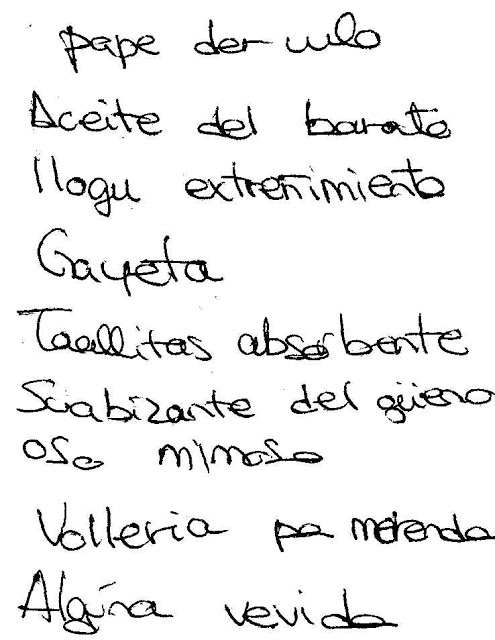 pape der culo
Aceite del barato
Ilogu extreñimiento
Gayeta
Toallitas absorbente
Suabizante del güeno
oso mimoso
Volleria pa merenda
Algina vevida